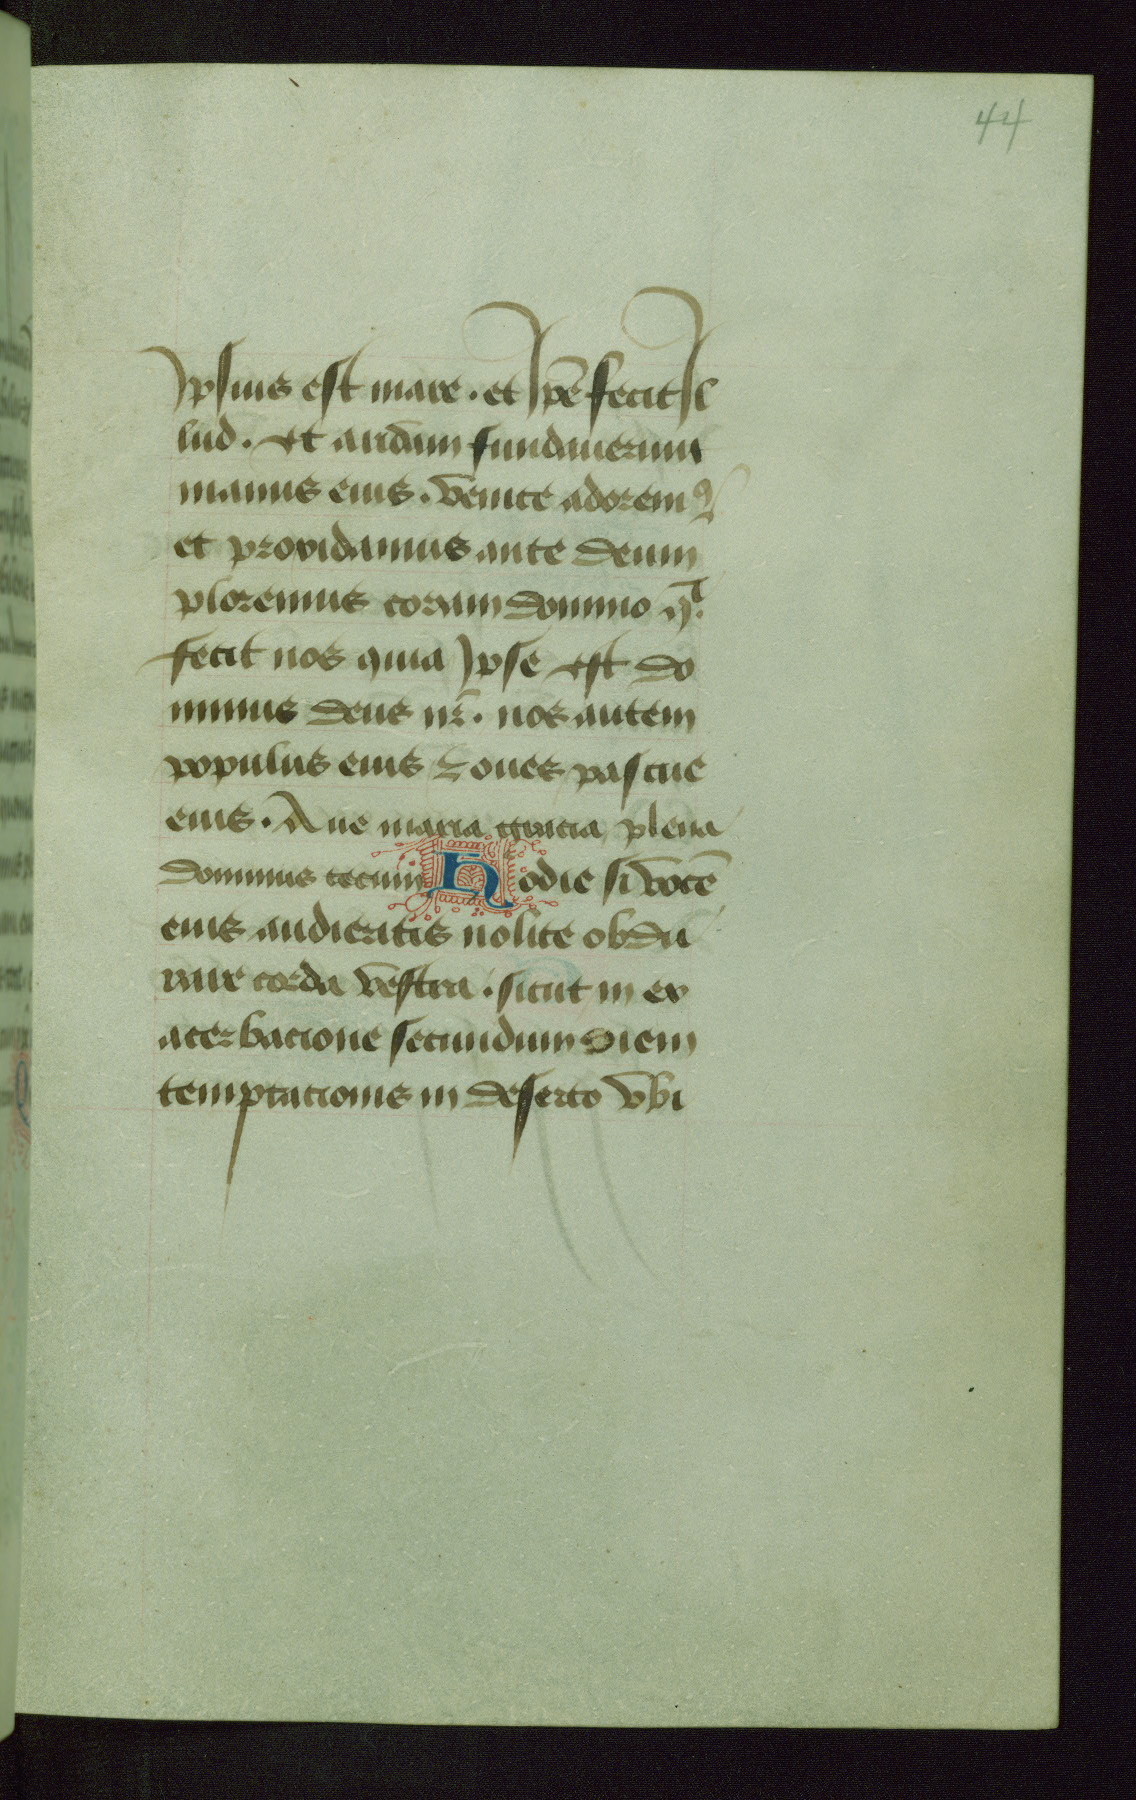 44
Ipsius est mare . et Ipē fecit Il
lud . et aridam fundauerunt
manus eius . venite adoremꝰ
et procidamus ante deum
ploremus coram domino qͥ
fecit nos quia Ipse est do
minus deus nr̄ . nos autem
populus eius ⁊ oues pascue
eius . Aue maria gracia plena
dominus tecum Hodie si vocē
eius audieritis nolite obdu
rare corda vestra . sicut in ex
acerbacione secundum diem
temptacionis in deserto vbi